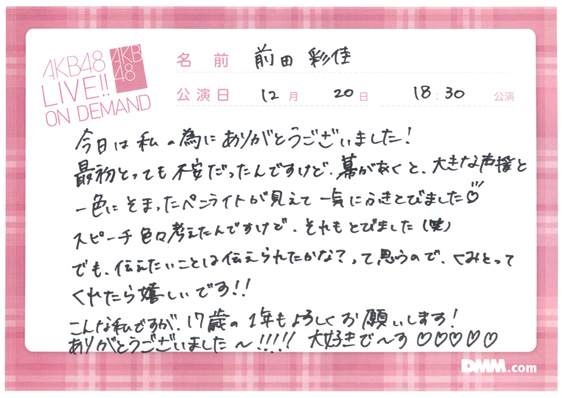 AKB48
LIVE!!
ON DEMAND
AKB
48
名前 前田 彩佳
公演日 12月 20日 18:30 公演
今日は私の為にありがとうございました!
最初とっても不安だったんですけど、幕があくと、大きな声援と
一色にそまったペンライトが見えて一気にふきとびました♡
スピーチ色々考えたんですけど、それもとびました(笑)
でも、伝えたいことは伝えられたかな?って思うので、くみとって
くれたら嬉しいです!!
こんな私ですが、17歳の1年もよろしくお願いします!
ありがとうございました〜!!!!! 大好きで〜す♡♡♡♡♡
DMM.com